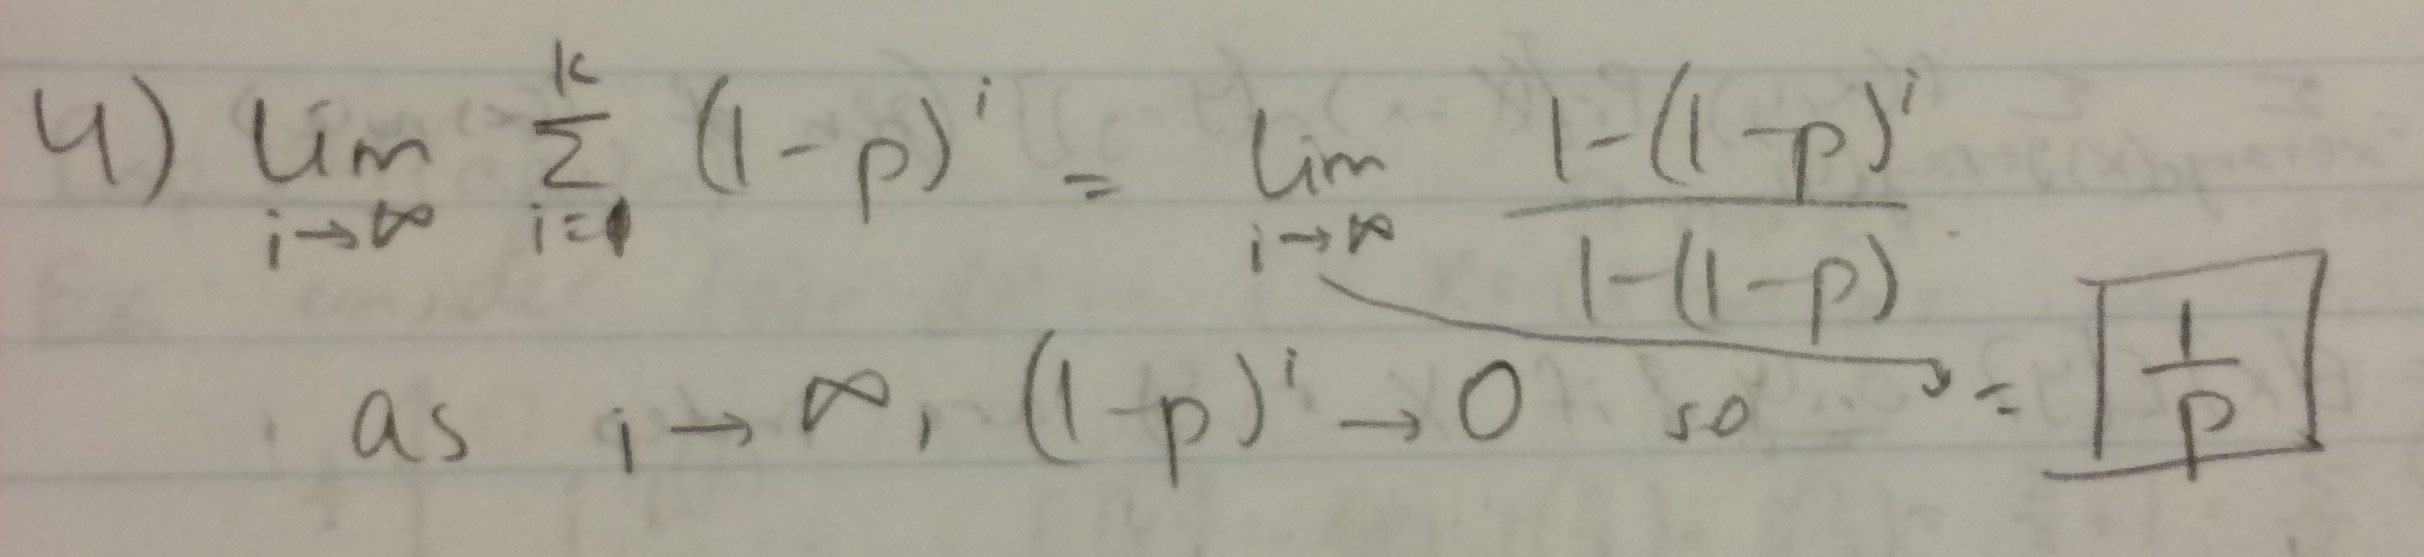 4) lim_{i→∞} Σ_{i=0}^{k} (1-p)^i = lim_{i→∞} (1-(1-p)^i)/(1-(1-p))
as i→∞, (1-p)^i → 0 so = 1/p